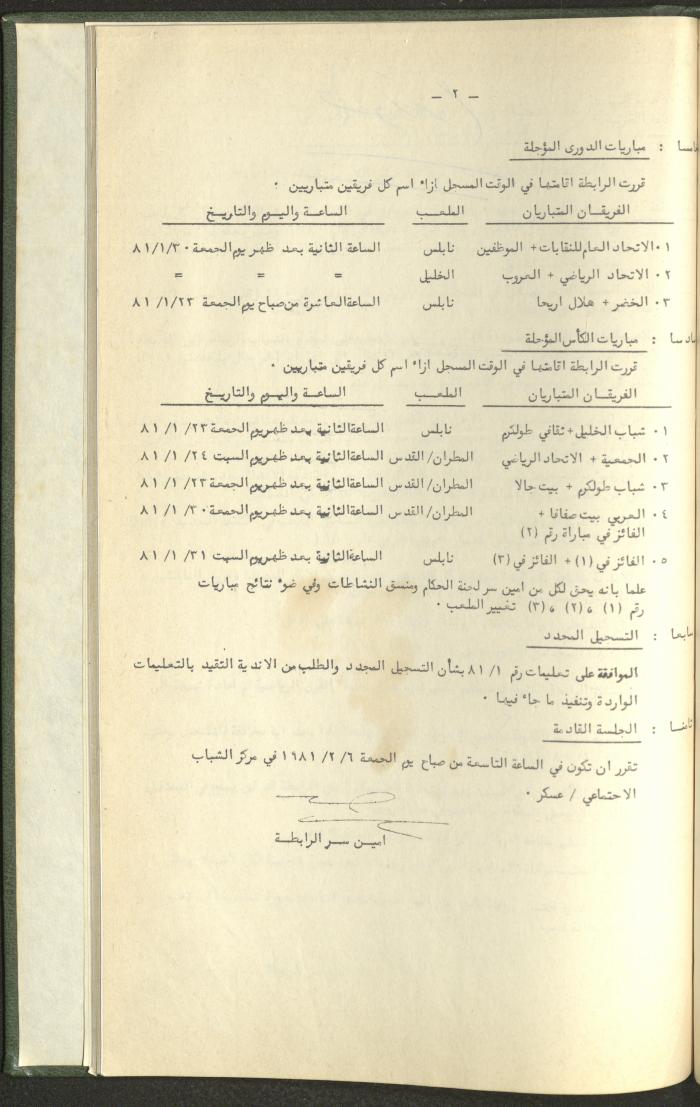 ـ ٢ ـ
خامسا : مباريات الدورى المؤجلة
قررت الرابطة اقامتها في الوقت المسجل ازاء اسم كل فريقين متباريين ٠
الفريقـان المتباريان الملعـب الساعـة واليـوم والتاريـخ
٠١ الاتحاد العام للنقابات + الموظفين نابلس الساعة الثانية بعد ظهر يوم الجمعة ٨١/١/٣٠
٠٢ الاتحاد الرياضي + العروب الخليل = = =
٠٣ الخضر + هلال اريحا نابلس الساعة العاشرة من صباح يوم الجمعة ٨١/١/٢٣
سادسا : مباريات الكأس المؤجلة
قررت الرابطة اقامتها في الوقت المسجل ازاء اسم كل فريقين متباريين ٠
الفريقـان المتباريان الملعـب الساعـة واليـوم والتاريـخ
٠١ شباب الخليل + ثقافي طولكرم نابلس الساعة الثانية بعد ظهر يوم الجمعة ٢٣/ ١/ ٨١
٠٢ الجمعية + الاتحاد الرياضي المطران/ القدس الساعة الثانية بعد ظهر يوم السبت ٢٤/ ١/ ٨١
٠٣ شباب طولكرم + بيت جالا المطران/ القدس الساعة الثانية بعد ظهر يوم الجمعة ٢٣/ ١/ ٨١
٠٤ العربي بيت صفافا + المطران/ القدس الساعة الثانية بعد ظهر يوم الجمعة ٣٠/ ١/ ٨١
الفائز في مباراة رقم (٢)
٠٥ الفائز في (١) + الفائز في (٣) نابلس الساعة الثانية بعد ظهر يوم السبت ٣١/ ١/ ٨١
علما بانه يحق لكل من امين سر لجنة الحكام ومنسق النشاطات وفي ضوء نتائج مباريات
رقم (١) ، (٢) ، (٣) تغيير الملعب ٠
سابعا : التسجيل المجدد
الموافقة على تعليمات رقم ٨١/١ بشأن التسجيل المجدد والطلب من الاندية التقيد بالتعليمات
الواردة وتنفيذ ما جاء فيها ٠
ثامنا : الجلسة القادمة
تقرر ان تكون في الساعة التاسعة من صباح يوم الجمعة ٦/ ٢/ ١٩٨١ في مركز الشباب
الاحتماعي / عسكر ٠
اميـن سـر الرابطـة